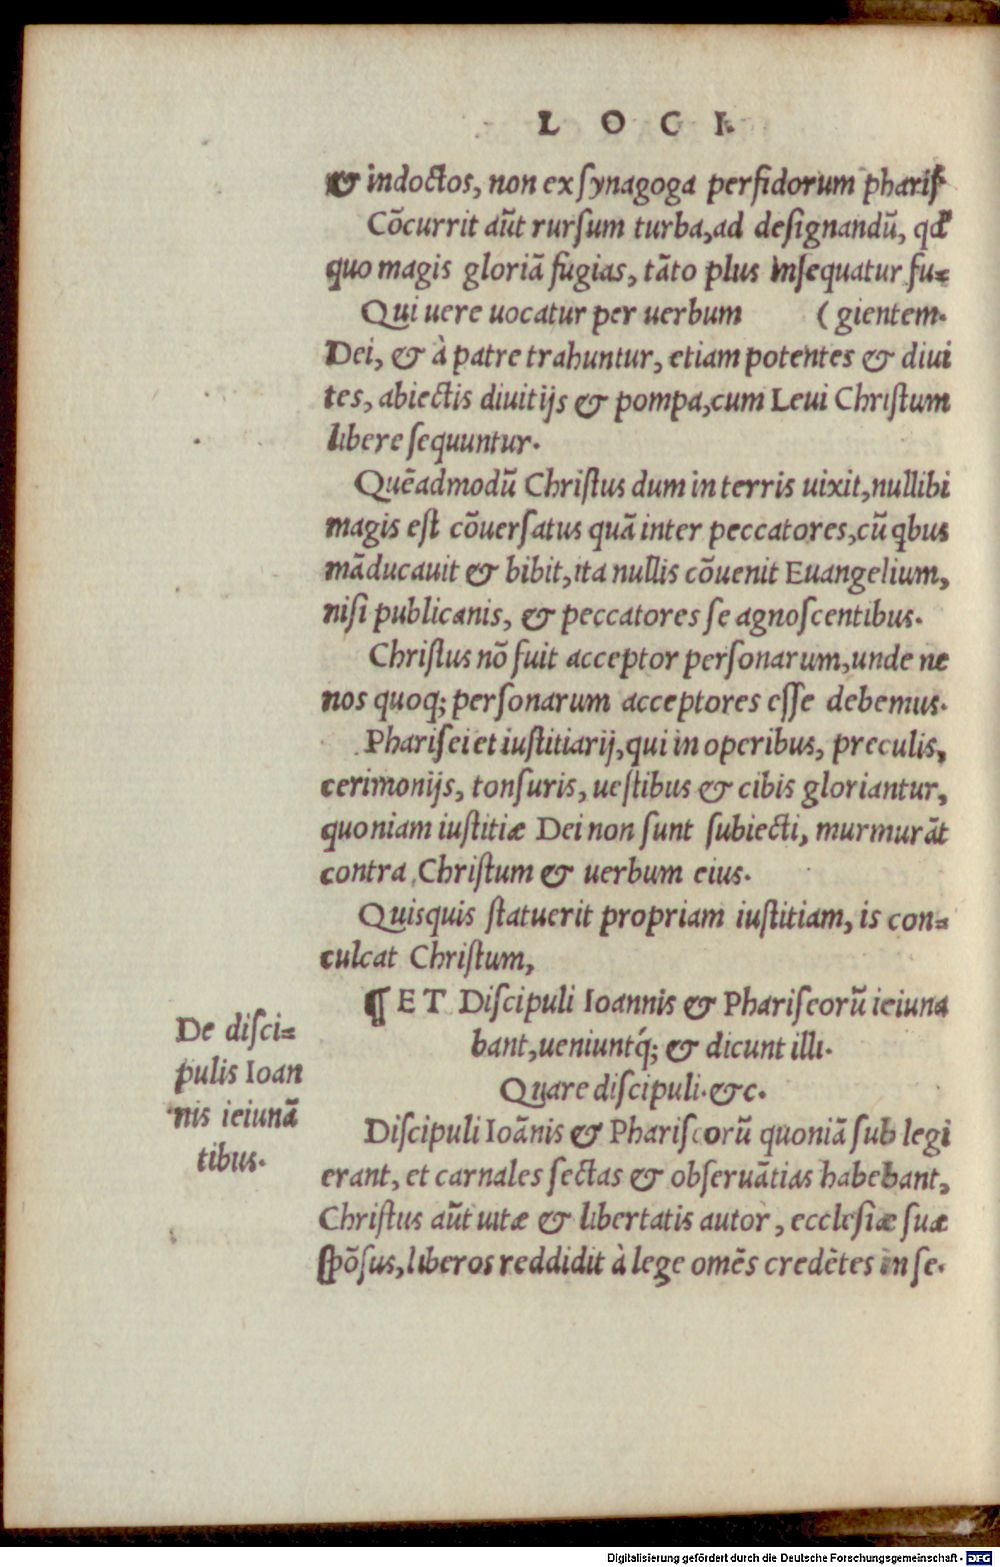 L O C I.
& indoctos, non ex synagoga perfidorum pharis.
Cõcurrit aũt rursum turba, ad designandũ, qđ
quo magis gloriã fugias, tãto plus insequatur fu=
Qui uere uocatur per uerbum (gientem.
Dei, & à patre trahuntur, etiam potentes & diui
tes, abiectis diuitijs & pompa, cum Leui Christum
libere sequuntur.
Quẽadmodũ Christus dum in terris uixit, nullibi
magis est cõuersatus quã inter peccatores, cũ qbus
mãducauit & bibit, ita nullis cõuenit Euangelium,
nisi publicanis, & peccatores se agnoscentibus.
Christus nõ fuit acceptor personarum, unde ne
nos quoq; personarum acceptores esse debemus.
Pharisei et iustitiarij, qui in operibus, preculis,
cerimonijs, tonsuris, uestibus & cibis gloriantur,
quoniam iustitiæ Dei non sunt subiecti, murmurãt
contra Christum & uerbum eius.
Quisquis statuerit propriam iustitiam, is con=
culcat Christum,
¶ ET Discipuli Ioannis & Phariseorũ ieiuna
bant, ueniuntq́; & dicunt illi.
Quare discipuli. &c.
De disci=
pulis Ioan
nis ieiunã
tibus.
Discipuli Ioãnis & Phariseorũ quoniã sub legi
erant, et carnales sectas & obseruãtias habebant,
Christus aũt uitæ & libertatis autor, ecclesiæ suæ
spõsus, liberos reddidit à lege omẽs credẽtes in se.
Digitalisierung gefördert durch die Deutsche Forschungsgemeinschaft - DFG